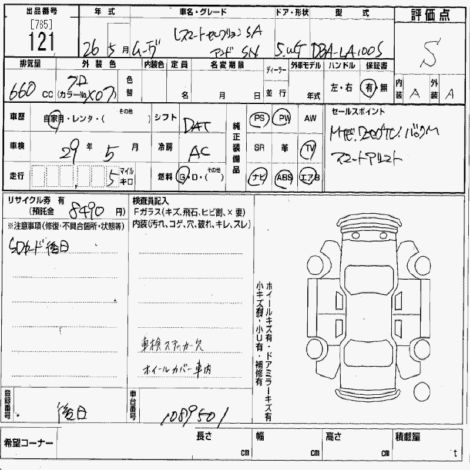 出品番号 年式 車名・グレード ドア・形状 型式 評価点
[785] スマートセレクション SA
121 26年 5月 ムーヴ 5. DBA-LA100S S
排気量 外装色 内装色 定員 名変期限 ディーラー 外車モデル ハンドル 保証書
660cc (カラーNo. X07) 色替 年 月 日 並行 年式 左・右 有・無 内装 A 外装 A
車歴 自家用・レンタ・(その他) シフト DAT 純正装備品 PS PW AW セールスポイント
車検 29年 5月 冷房 AC SR 革 TV
スマートアシスト
走行 5 マイル キロ 燃料 G・D・(その他) ナビ ABS エアB
リサイクル券 有 (預託金 8490円) 検査員記入
※注意事項(修復・不具合箇所・状態等) Fガラス(キズ、飛石、ヒビ割、×要)
内装(汚れ、コゲ、穴、破れ、キレ、スレ)
SDカード後日
ホイールキズ有・ドアミラーキズ有
小キズ有・小U有・補修有
車検ステッカー欠
ホイルカバー車内
登録番号 後日 車台番号 1089501
希望コーナー 長さ cm 幅 cm 高さ cm 積載量 t